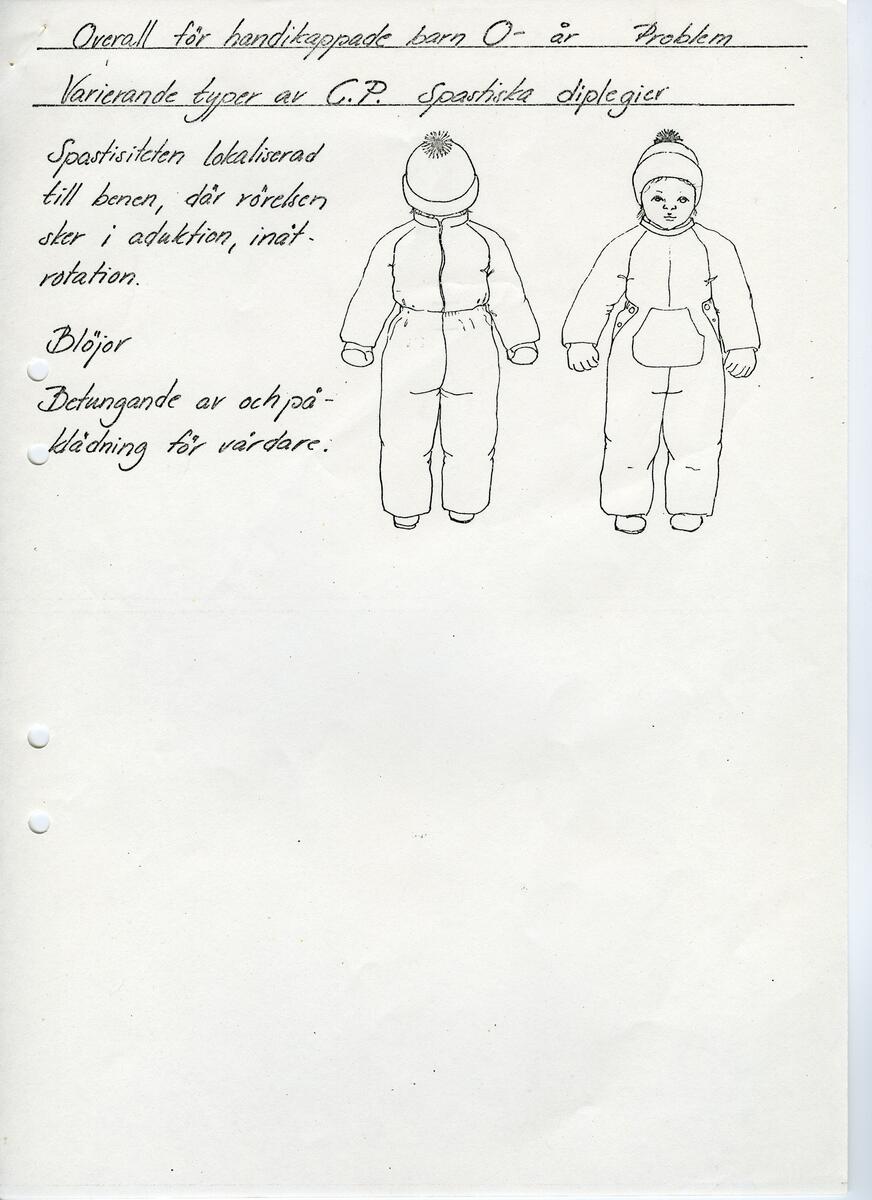 Overall för handikappade barn 0- år Problem
Varierande typer av C.P. Spastiska diplegier
Spastisiteten lokaliserad
till benen, där rörelsen
sker i aduktion, inåt-
rotation.
Blöjor
Betungande av och på-
klädning för vårdare.